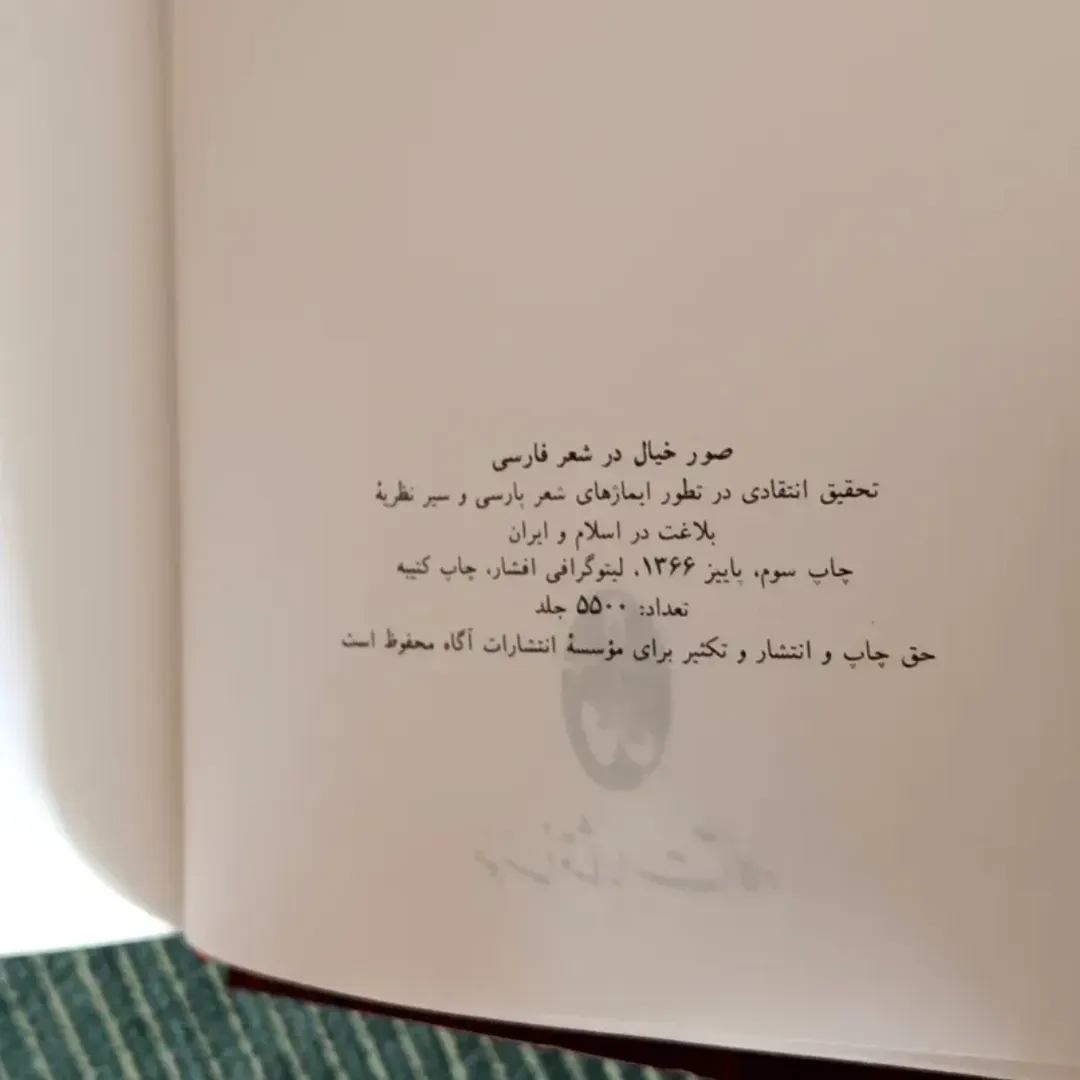 صور خیال در شعر فارسی
تحقیق انتقادی در تطور ایماژهای شعر پارسی و سیر نظریهٔ
بلاغت در اسلام و ایران
چاپ سوم، پاییز ۱۳۶۶، لیتوگرافی افشار، چاپ کتیبه
تعداد: ۵۵۰۰ جلد
حق چاپ و انتشار و تکثیر برای مؤسسهٔ انتشارات آگاه محفوظ است